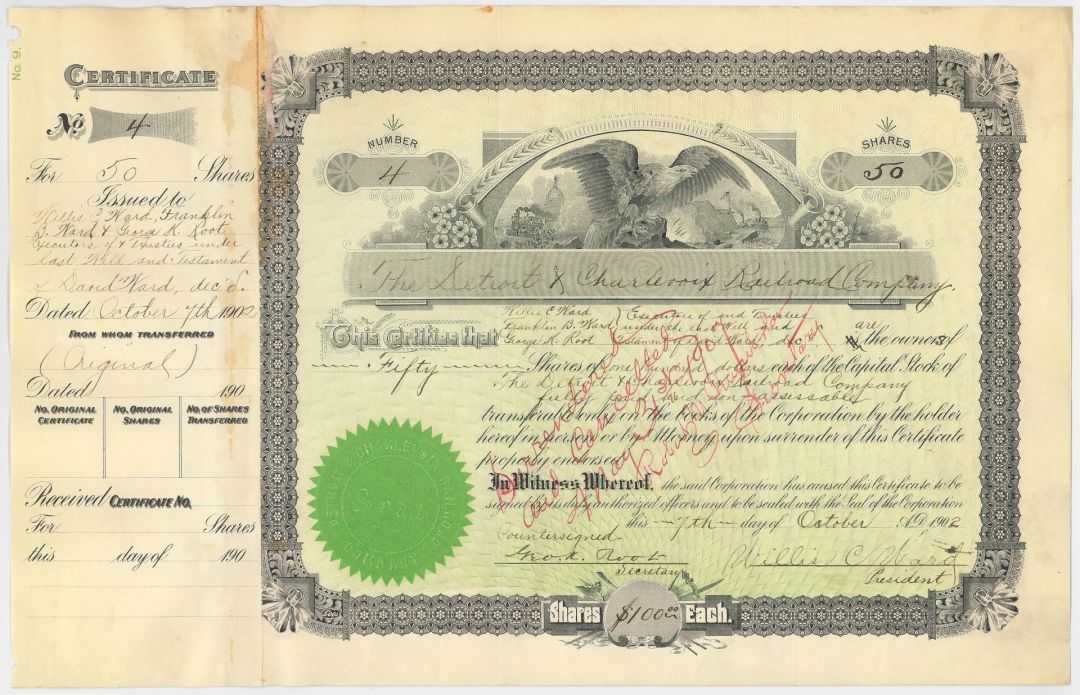 No. 9.
CERTIFICATE
No 4
For 50 Shares
Issued to
Willis C Ward, Franklin
B. Ward & George K. Root
Executors of & Trustees under
Last Will and Testament
of David Ward, dec'd.
Dated October 7th 1902
FROM WHOM TRANSFERRED
(Original)
Dated 190
NO. ORIGINAL CERTIFICATE
NO. ORIGINAL SHARES
NO. OF SHARES TRANSFERRED
Received CERTIFICATE NO.
For Shares
this day of 190
NUMBER
4
SHARES
50
The Detroit & Charlevoix Railroad Company.
This Certifies that
Willis C Ward
Franklin B. Ward
George K. Root
Executors of and Trustees
under the last Will and
Testament of David Ward, dec'd
are the owners of
Fifty
Shares of one hundred dollars each of the Capital Stock of
The Detroit & Charlevoix Railroad Company
fully paid and non assessable
transferable only on the books of the Corporation by the holder
hereof in person or by Attorney upon surrender of this Certificate
properly endorsed.
In Witness Whereof, the said Corporation has caused this Certificate to be
signed by its duly authorized officers and to be sealed with the Seal of the Corporation
this 7th day of October A.D. 1902
Countersigned
Geo. K. Root
Secretary
Willis C Ward
President
Surrendered
and Cancelled
May 1908
Secretary
Shares $100.00 Each.